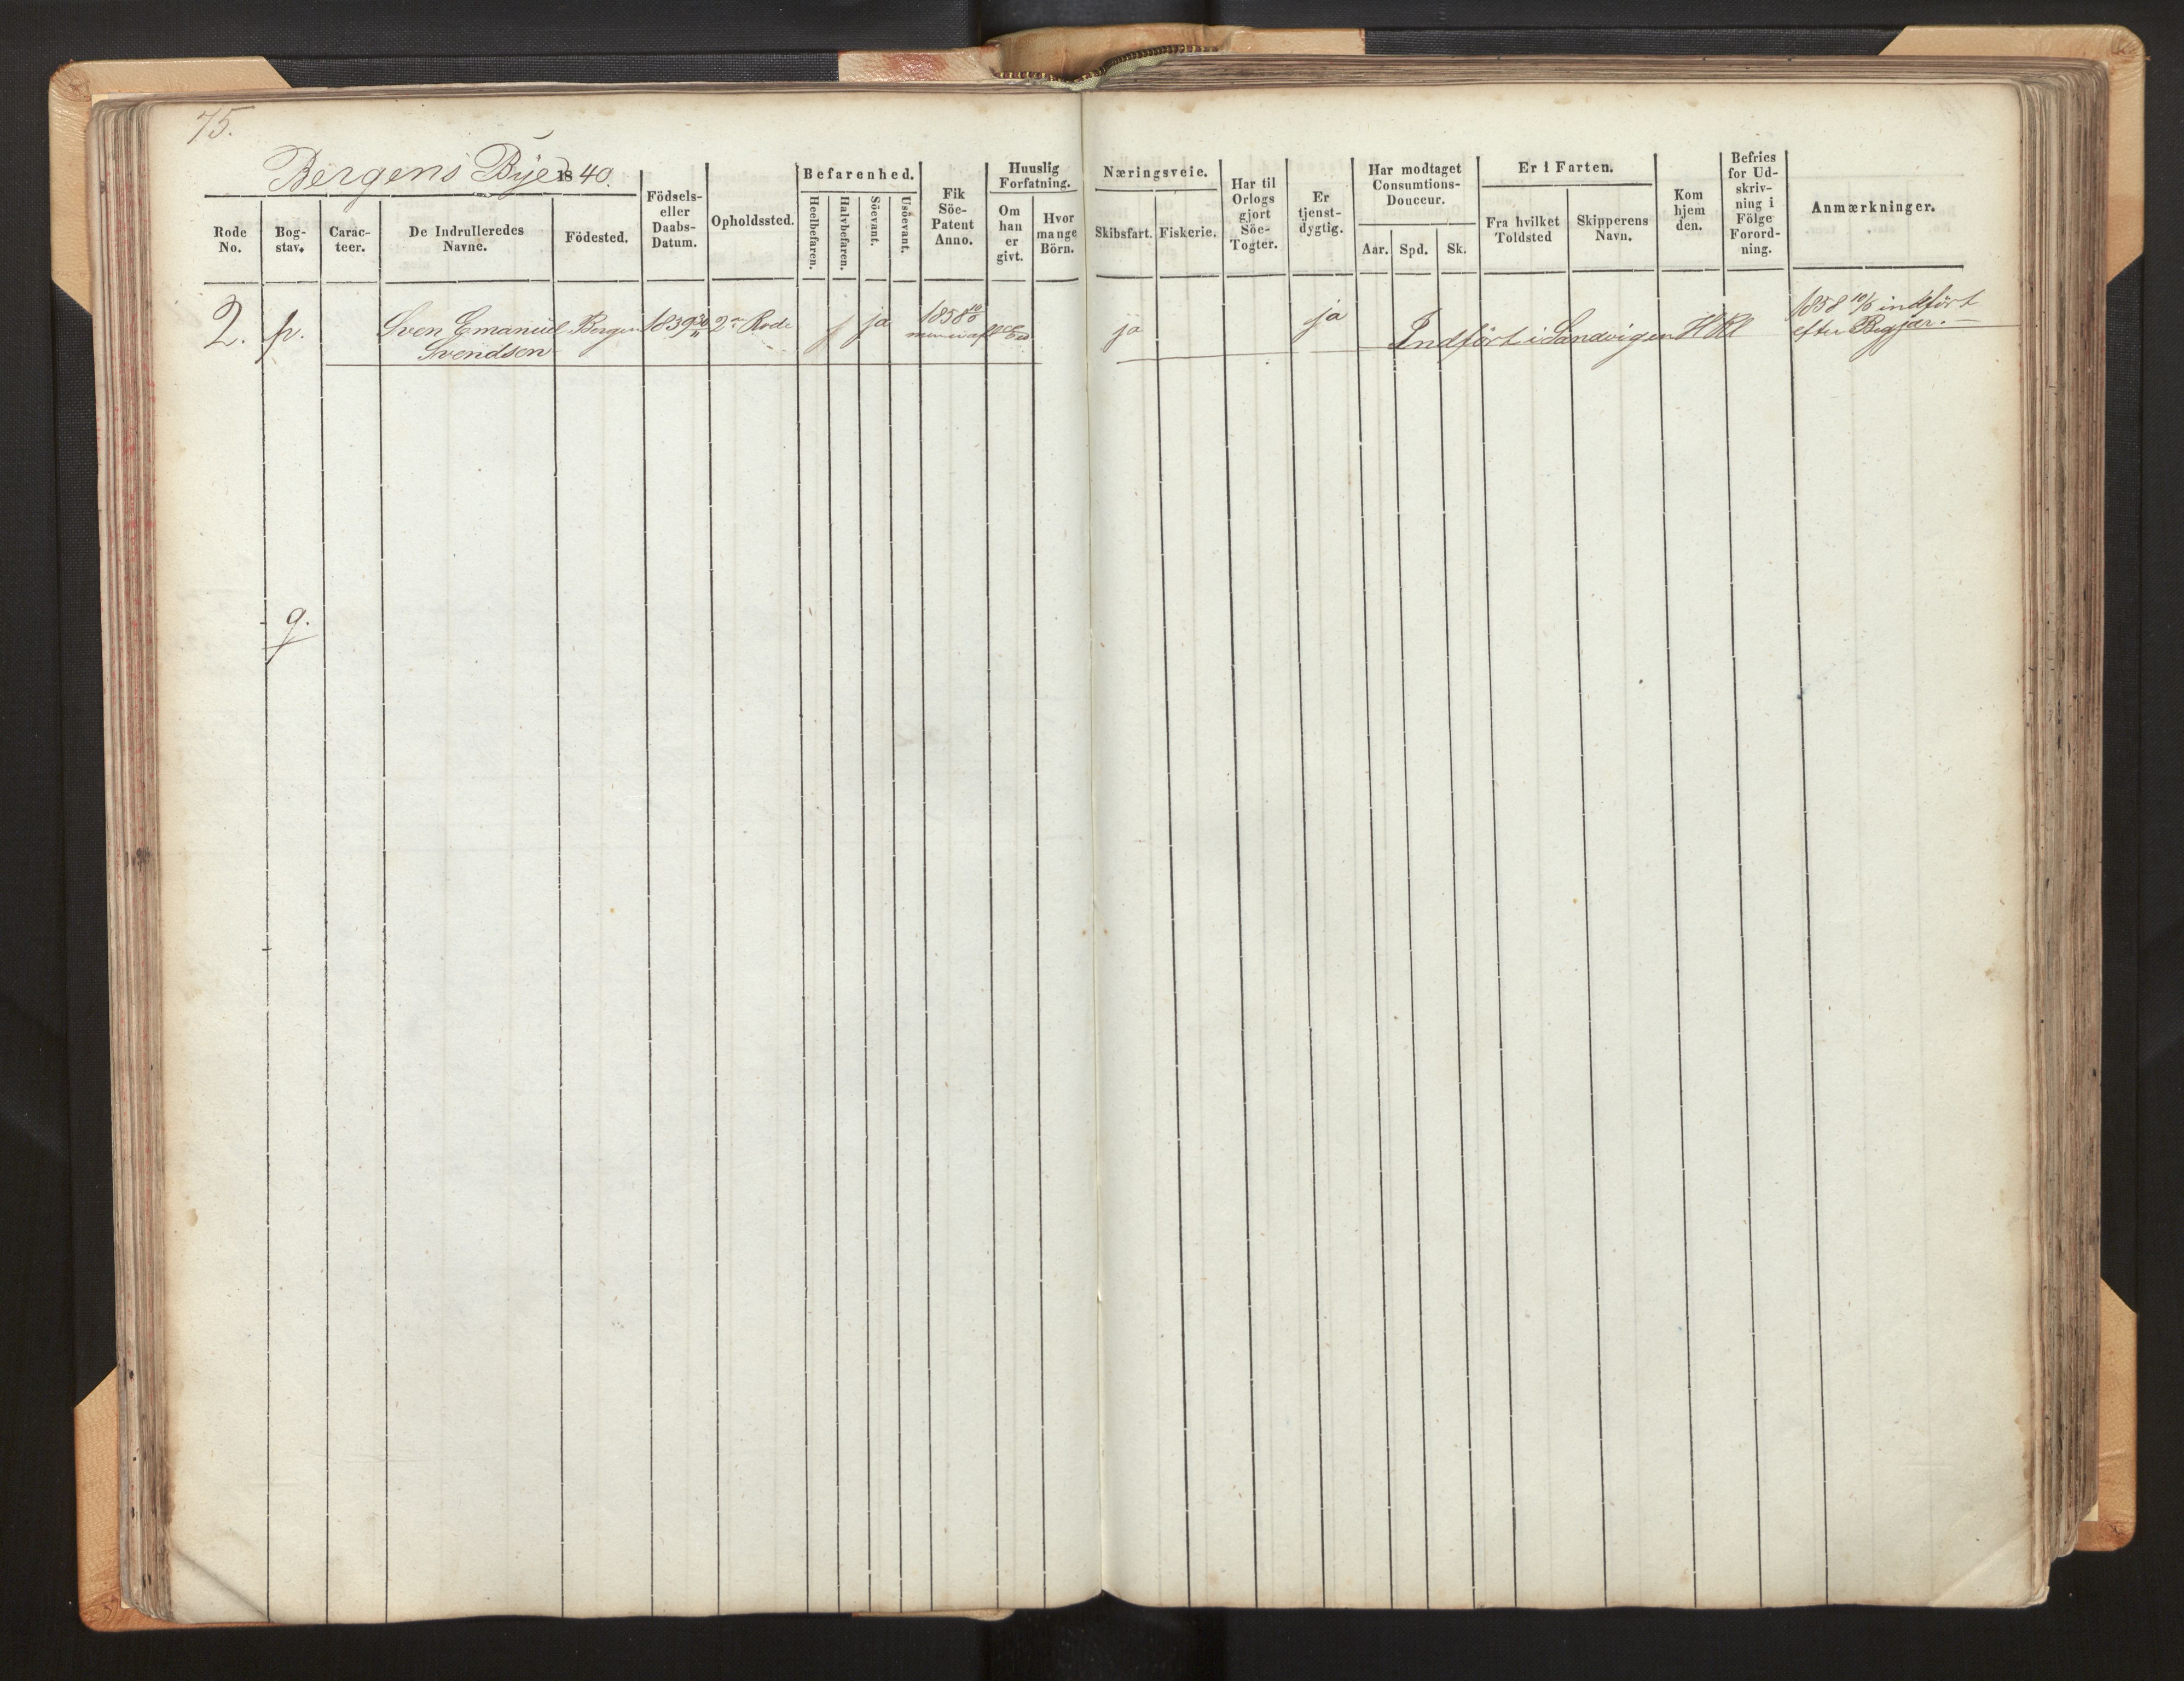 75.
Bergens Bÿe 1840.
Rode No.
Bog-stav.
Carac-teer.
De Indrulleredes Navne.
Födested.
Födsels- eller Daabs-Datum.
Opholdssted.
Befarenhed.
Heelbefaren.
Halvbefaren.
Söevant.
Usöevant.
Fik Söe-Patent Anno.
Huuslig Forfatning.
Om han er givt.
Hvor mange Börn.
Næringsveie.
Skibsfart.
Fiskerie.
Har til Orlogs gjort Söe-Togter.
Er tjenst-dygtig.
Har modtaget Consumtions-Douceur.
Aar.
Spd.
Sk.
Er i Farten.
Fra hvilket Toldsted
Skipperens Navn.
Kom hjem den.
Befries for Ud-skriv-ning i Fölge Forord-ning.
Anmærkninger.
2. p. Sven Emanuel Bergen 1839 2 Rode ja 1858 ja ja Indført i Sandvigen HRl 1858 10/6 indført
Svendsen efter Begjær.
q.